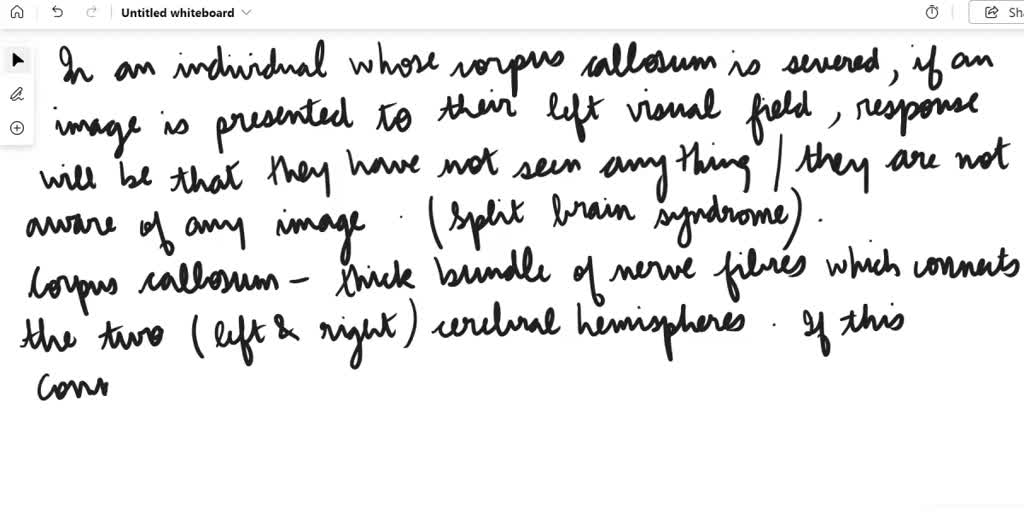 Untitled whiteboard
Sha
In an individual whose corpus callosum is severed, if an
image is presented to their left visual field, response
will be that they have not seen any thing / they are not
aware of any image. (split brain syndrome).
Corpus callosum - thick bundle of nerve fibres which connects
the two (left & right) cerebral hemispheres. If this
conn